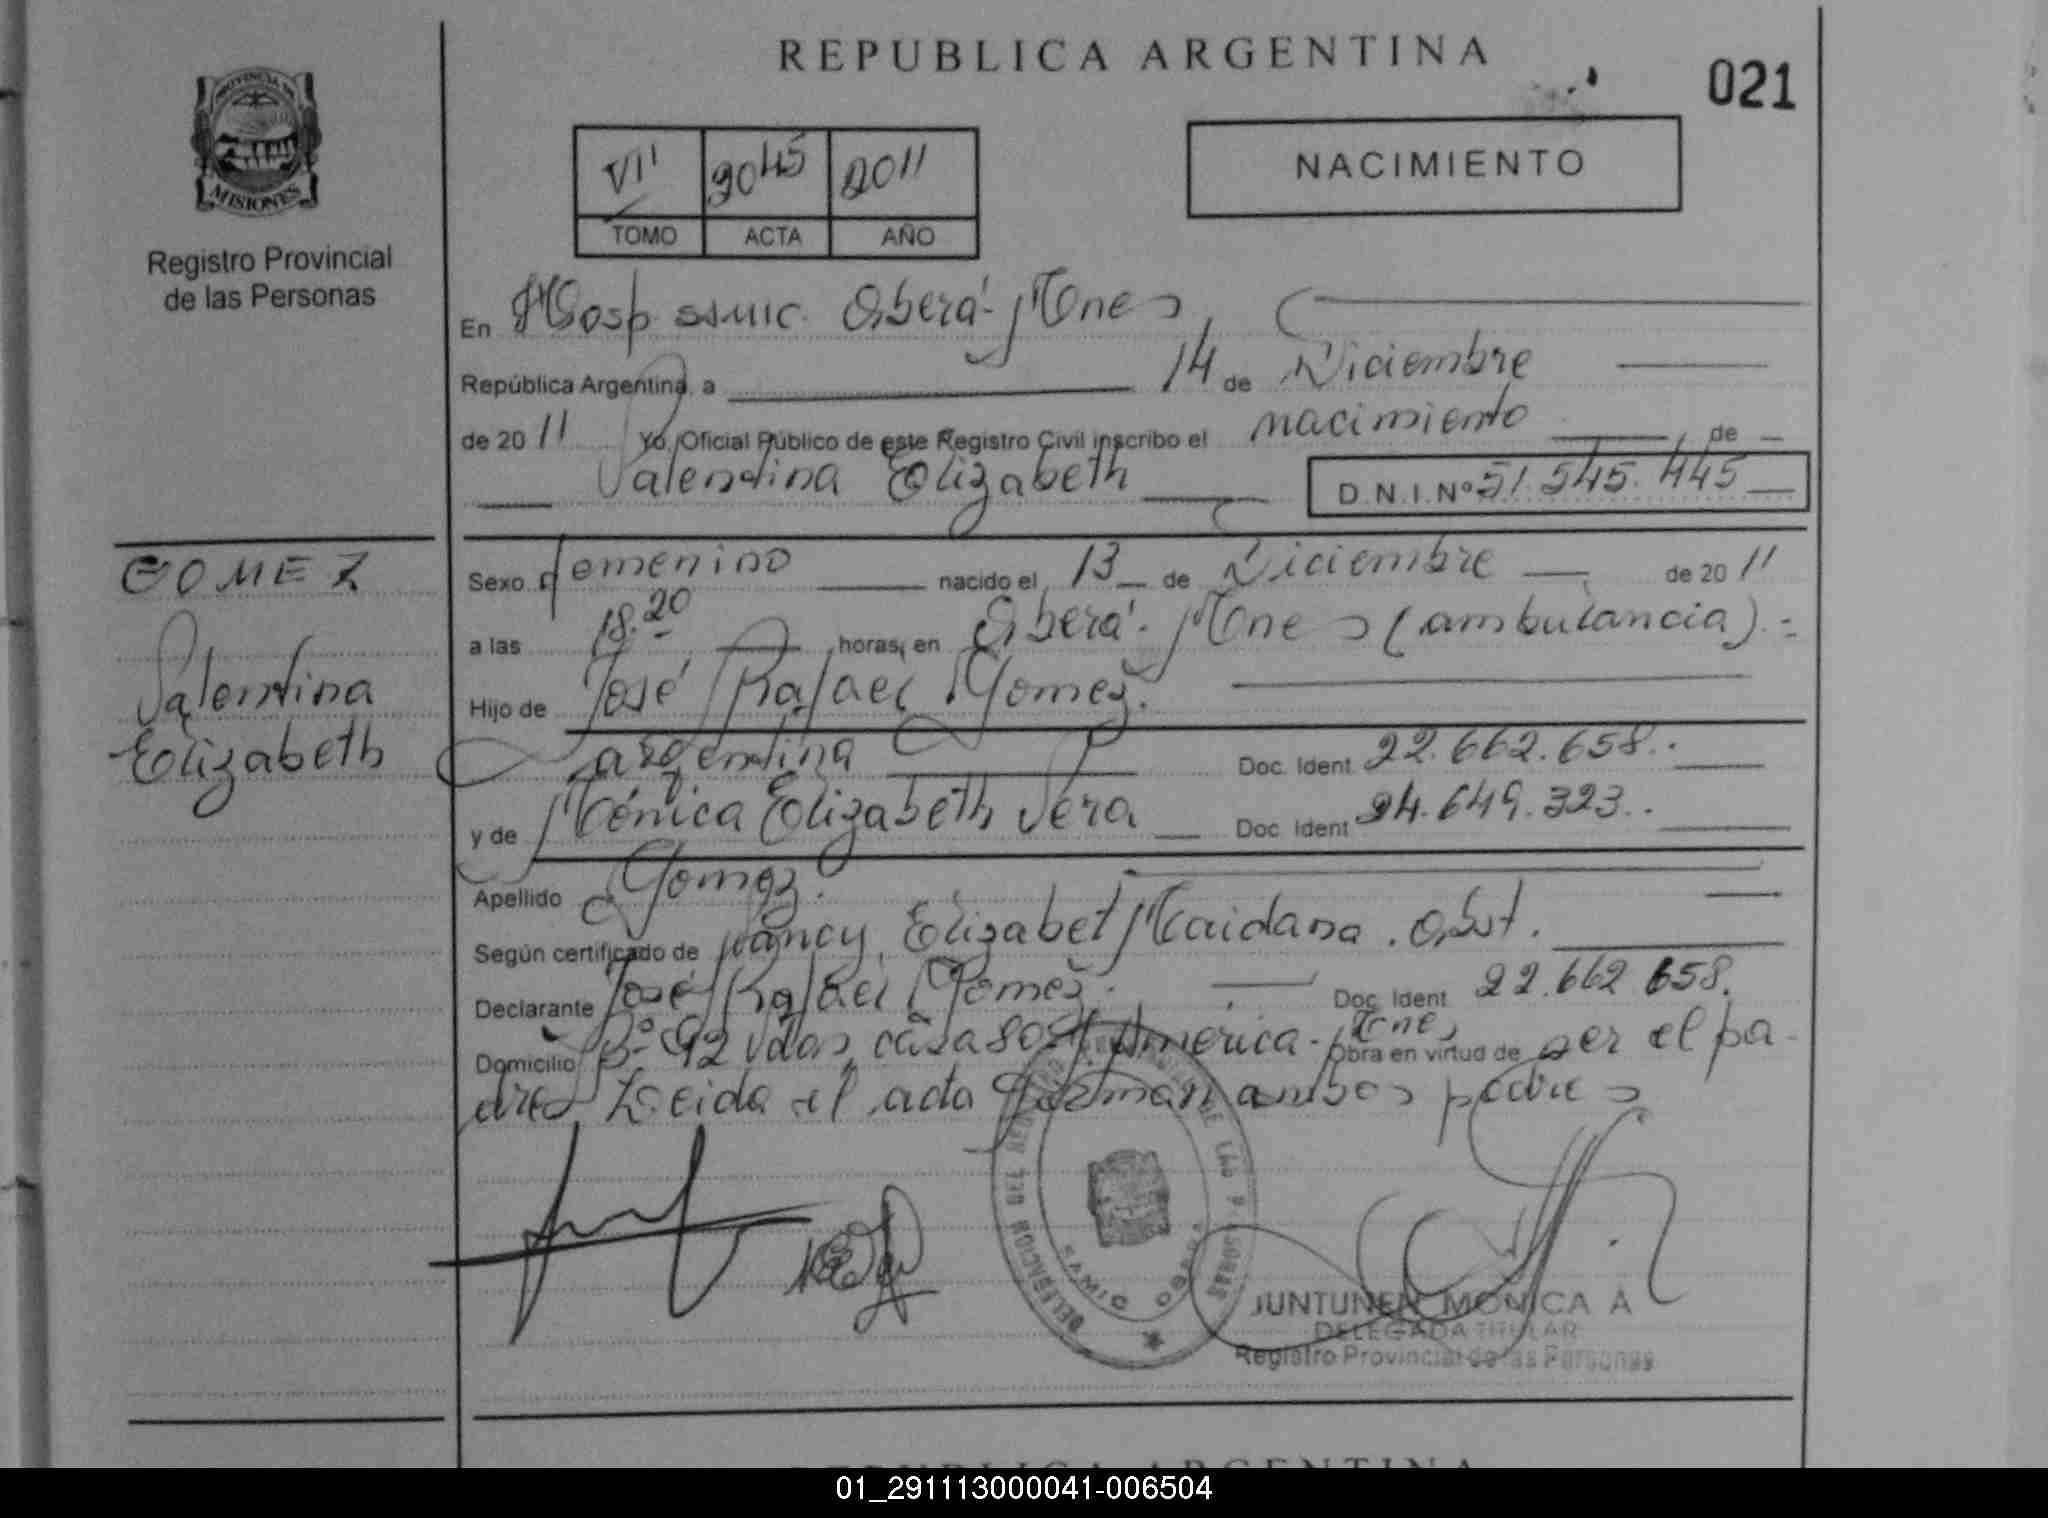 REPUBLICA ARGENTINA
021
PROVINCIA DE
MISIONES
Registro Provincial
de las Personas
VII 2045 2011
TOMO ACTA AÑO
NACIMIENTO
En Hosp ssmic. Oberá - Mnes
República Argentina, a 14 de Diciembre
de 2011 Yo, Oficial Público de este Registro Civil inscribo el nacimiento de
Valentina Elizabeth D.N.I.Nº 51.545.445
GOMEZ
Valentina
Elizabeth
Sexo femenino nacido el 13 de Diciembre de 2011
a las 18.20 horas, en Oberá - Mnes (ambulancia).=
Hijo de José Rafael Gomez.
argentina Doc. Ident. 22.662.658.
y de Mónica Elizabeth Vera Doc. Ident 24.649.323.
Apellido Gomez.
Según certificado de Nancy Elizabet Maidana. Obst.
Declarante José Rafael Gomez. Doc. Ident. 22.662.658.
Domicilio Bº 92 vdas, casa 80 America - Mnes Obra en virtud de ser el pa-
dre. Leida el acta firman ambos padres
DELEGACION DEL REGISTRO PROVINCIAL DE LAS PERSONAS
JUNTUNEN MONICA A
DELEGADA TITULAR
Registro Provincial de las Personas
REPUBLICA ARGENTINA
01_291113000041-006504